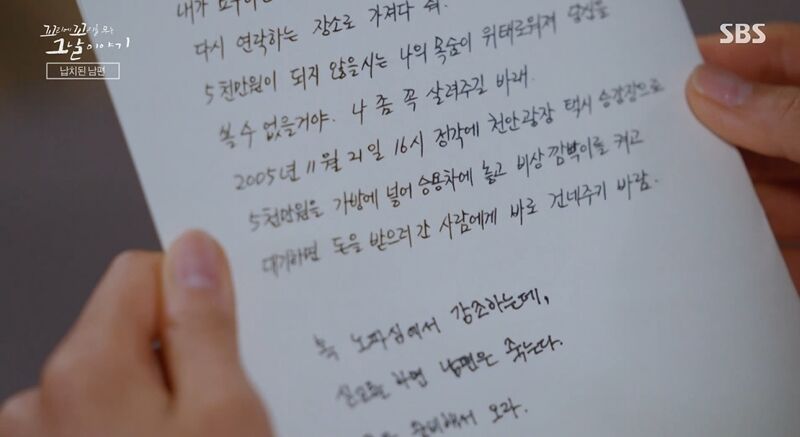 꼬리에 꼬리를 무는
그날 이야기
납치된 남편
SBS
내가
다시 연락하는 장소로 가져다 줘.
5천만원이 되지 않을시는 나의 목숨이 위태로워져
볼 수 없을거야. 나 좀 꼭 살려주길 바래.
2005년 11월 21일 16시 정각에 천안광장 택시 승강장으로
5천만원을 가방에 넣어 승용차에 놓고 비상 깜빡이를 켜고
대기하면 돈을 받으러 간 사람에게 바로 건네주기 바람.
혹 노파심에서 강조하는데,
하면 남편은 죽는다.
준비해서 오라.